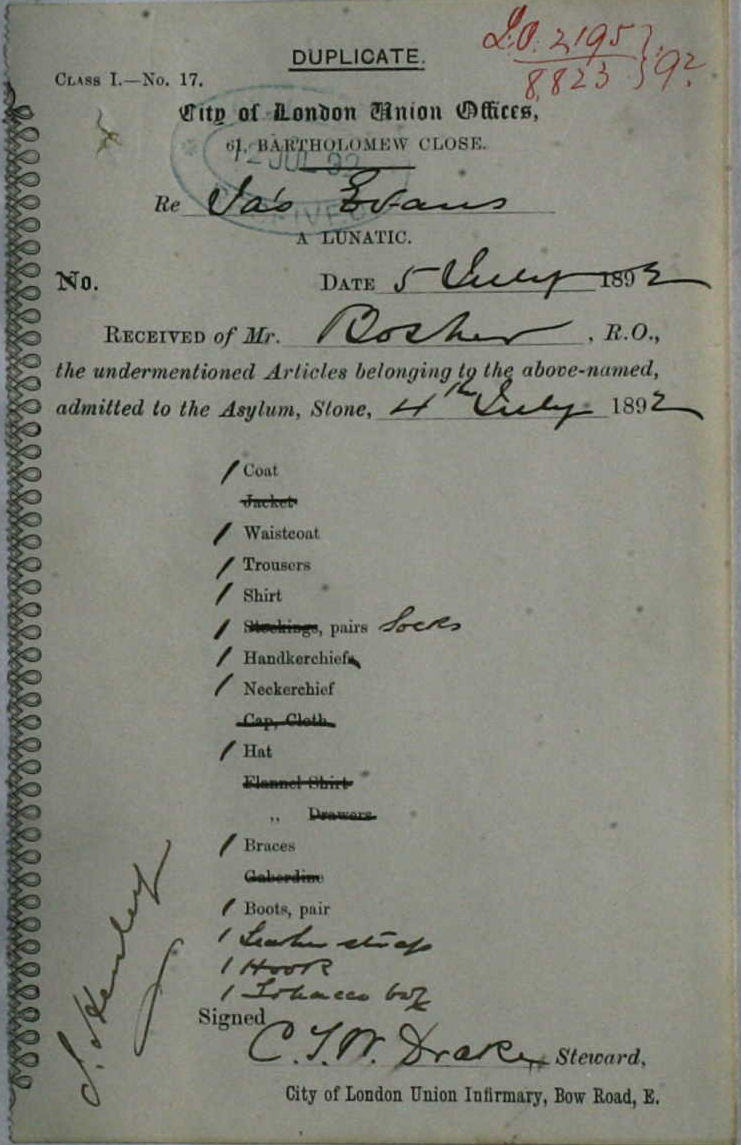 DUPLICATE.
L.O. 2195
8,823 } 92
CLASS I.—No. 17.
City of London Union Offices,
61, BARTHOLOMEW CLOSE.
JUL 92
Re Jas Evans
A LUNATIC.
No. DATE 5 July 1892
RECEIVED of Mr. Bosher, R.O.,
the undermentioned Articles belonging to the above-named,
admitted to the Asylum, Stone, 4th July 1892
1 Coat
Jacket
1 Waistcoat
1 Trousers
1 Shirt
1 Stockings, pairs Socks
1 Handkerchiefs
1 Neckerchief
Cap, Cloth
1 Hat
Flannel Shirt
,, Drawers
1 Braces
Gaberdine
1 Boots, pair
1 Leather strap
1 Hook
1 Tobacco box
Signed
C. T. W. Drake, Steward,
City of London Union Infirmary, Bow Road, E.